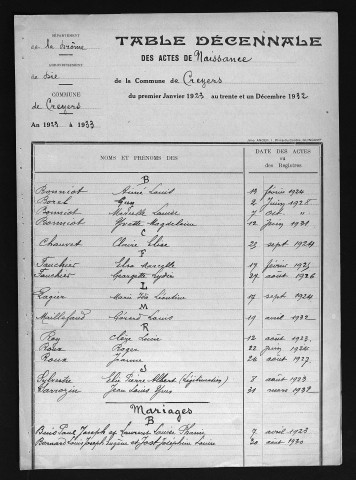 DÉPARTEMENT
de la Drôme
ARRONDISSEMENT
de Die
COMMUNE
de Creyers
An 1923 à 1933
TABLE DÉCENNALE
DES ACTES DE Naissance
de la Commune de Creyers
du premier Janvier 1923 au trente et un Décembre 1932
NOMS ET PRÉNOMS DES
DATE DES ACTES
ou
des Registres
B
Bonniot Aimé Louis 19 février 1924
Borel Guy 2 Juin 1925
Bonniot Louise 7 oct "
Bonniot Yvette Magdeleine 12 juin 1931
C
Chauvet Claire Elise 23 sept 1924
F
Faucher Elsa Marcelle 17 février 1925
Faucher Georgette Lydie 27 août 1926
L
Lagier Marie Léontine 19 sept 1924
M
Maillefaud Gérard Louis 19 avril 1932
R
Rey Lucie 12 août 1923
Roux Roger 22 juin 1924
Roux Jeanne 24 août 1927
S
Sylvestre Elie Pierre Albert (Légitimation) 8 août 1923
Jean Louis Yves 31 mars 1932
Mariages
B
Paul Joseph et Laurent Louise 7 avril 1923
Bernard Louis Joseph Eugène et Jost Joséphine Louise 20 août 1930